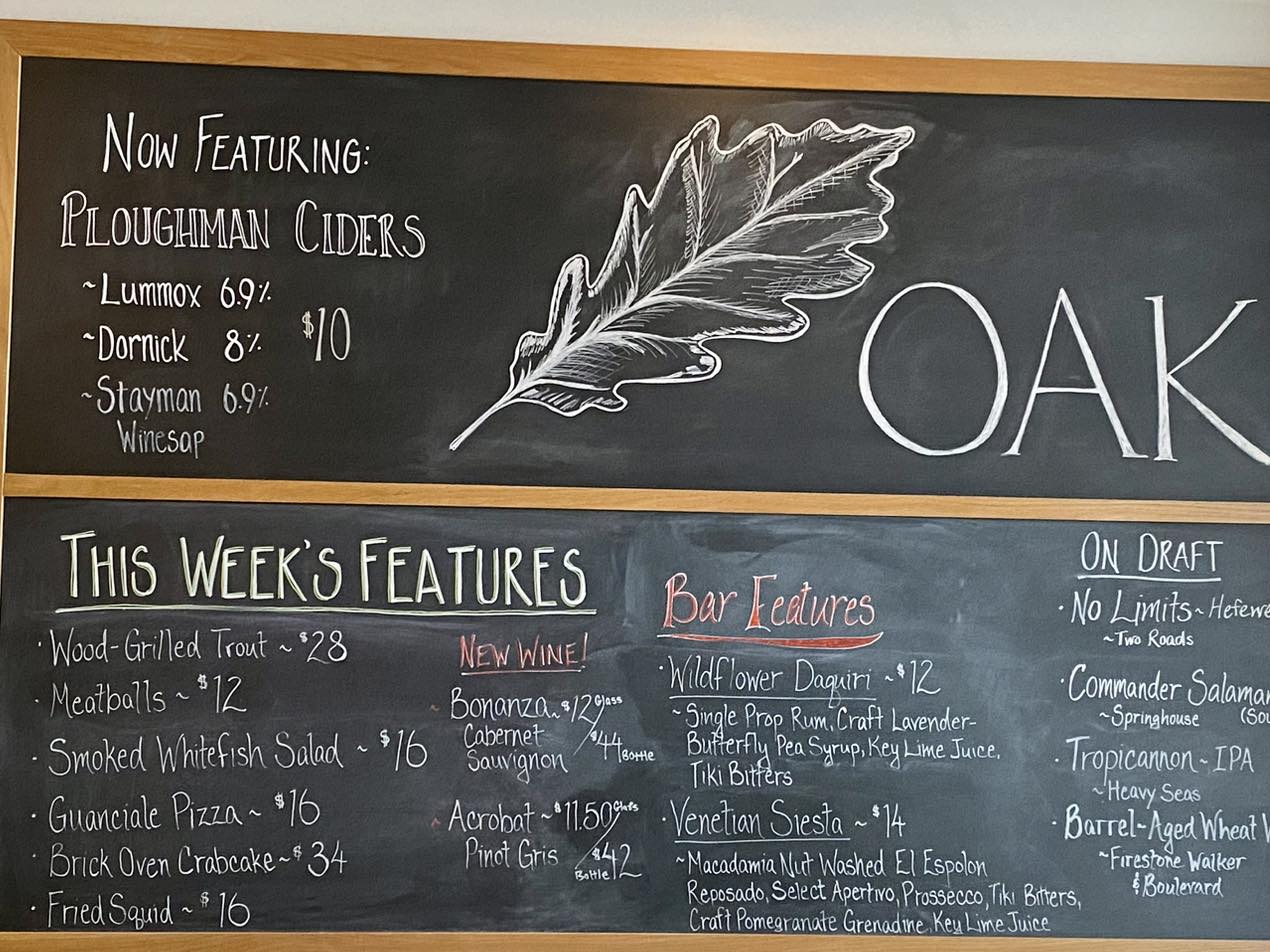 Now Featuring:
Ploughman Ciders
~Lummox 6.9%
~Dornick 8% $10
~Stayman 6.9%
Winesap
OAK
This Week's Features
· Wood-Grilled Trout ~ $28
· Meatballs ~ $12
· Smoked Whitefish Salad ~ $16
· Guanciale Pizza ~ $16
· Brick Oven Crabcake ~ $34
· Fried Squid ~ $16
New Wine!
~ Bonanza ~ $12 Glass
Cabernet / $44 Bottle
Sauvignon
~ Acrobat ~ $11.50 Glass
Pinot Gris / $42 Bottle
Bar Features
· Wildflower Daquiri ~ $12
~Single Prop Rum, Craft Lavender-
Butterfly Pea Syrup, Key Lime Juice,
Tiki Bitters
· Venetian Siesta ~ $14
~Macadamia Nut Washed El Espolon
Reposado, Select Apertivo, Prossecco, Tiki Bitters,
Craft Pomegranate Grenadine, Key Lime Juice
On Draft
· No Limits ~ Hefewe
~Two Roads
· Commander Salaman
~Springhouse (Sou
· Tropicannon ~ IPA
~Heavy Seas
· Barrel-Aged Wheat
~Firestone Walker
& Boulevard